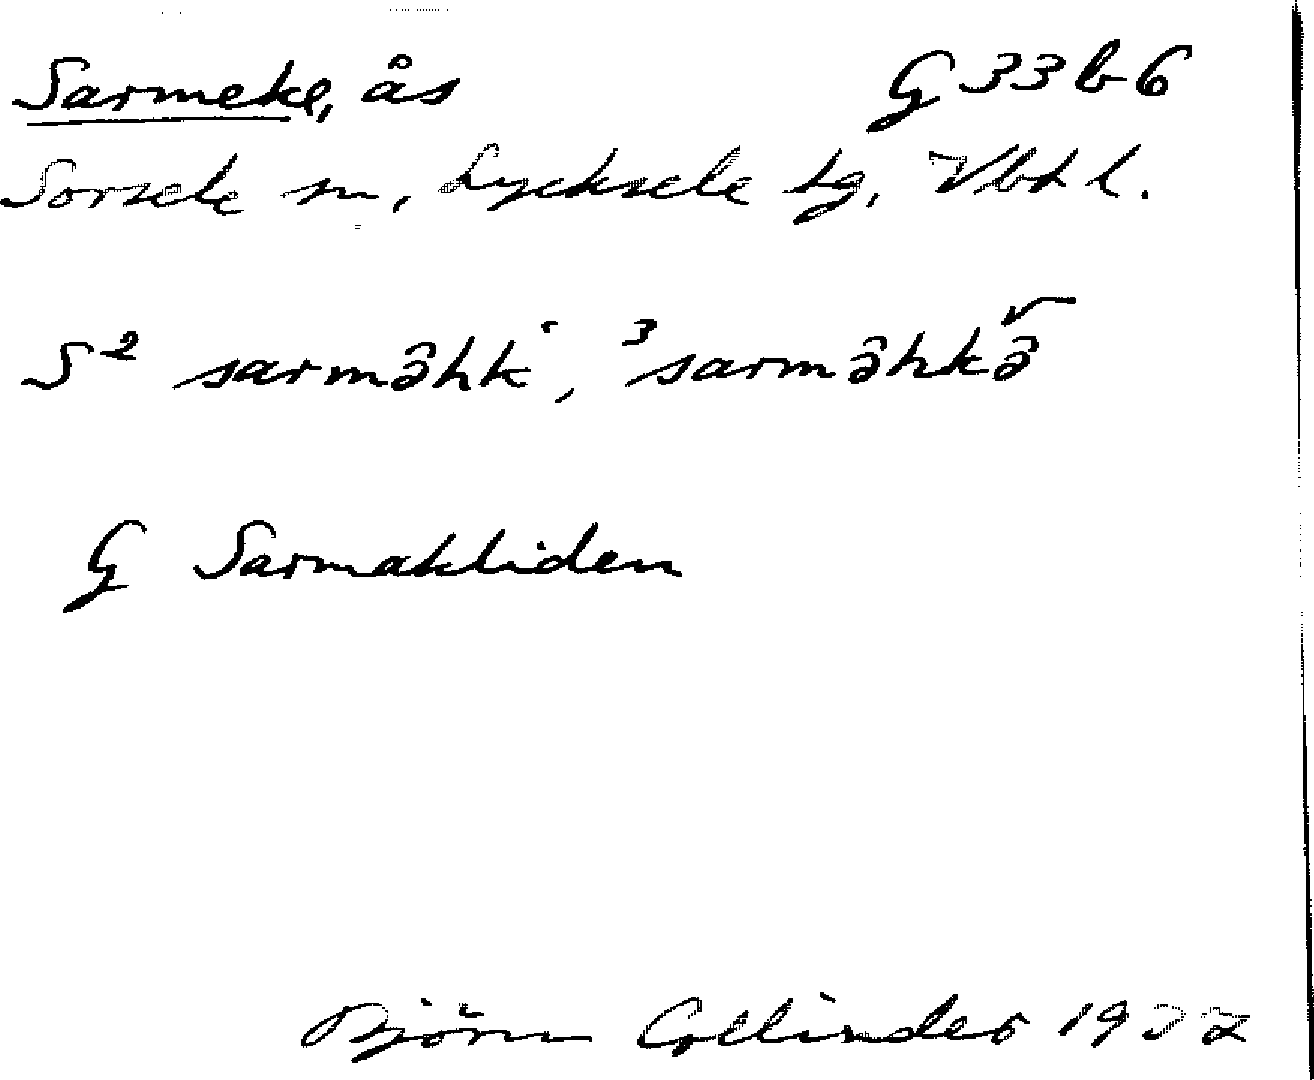 Sarmeke, ås G 33 b 6
Sorsele sn, Lycksele tg, Vbtl.
S² sarmə̂hk˙, ³sarmə̂hkə̂
G Sarmakliden
Björn Collinder